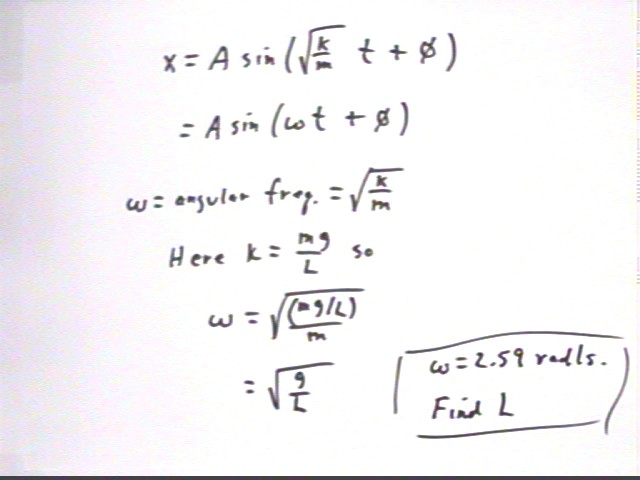 x = A sin(√(k/m) t + ϕ)
= A sin(ωt + ϕ)
ω = angular freq. = √(k/m)
Here k = mg/L so
ω = √((mg/L)/m)
= √(g/L)
ω = 2.59 rad/s.
Find L